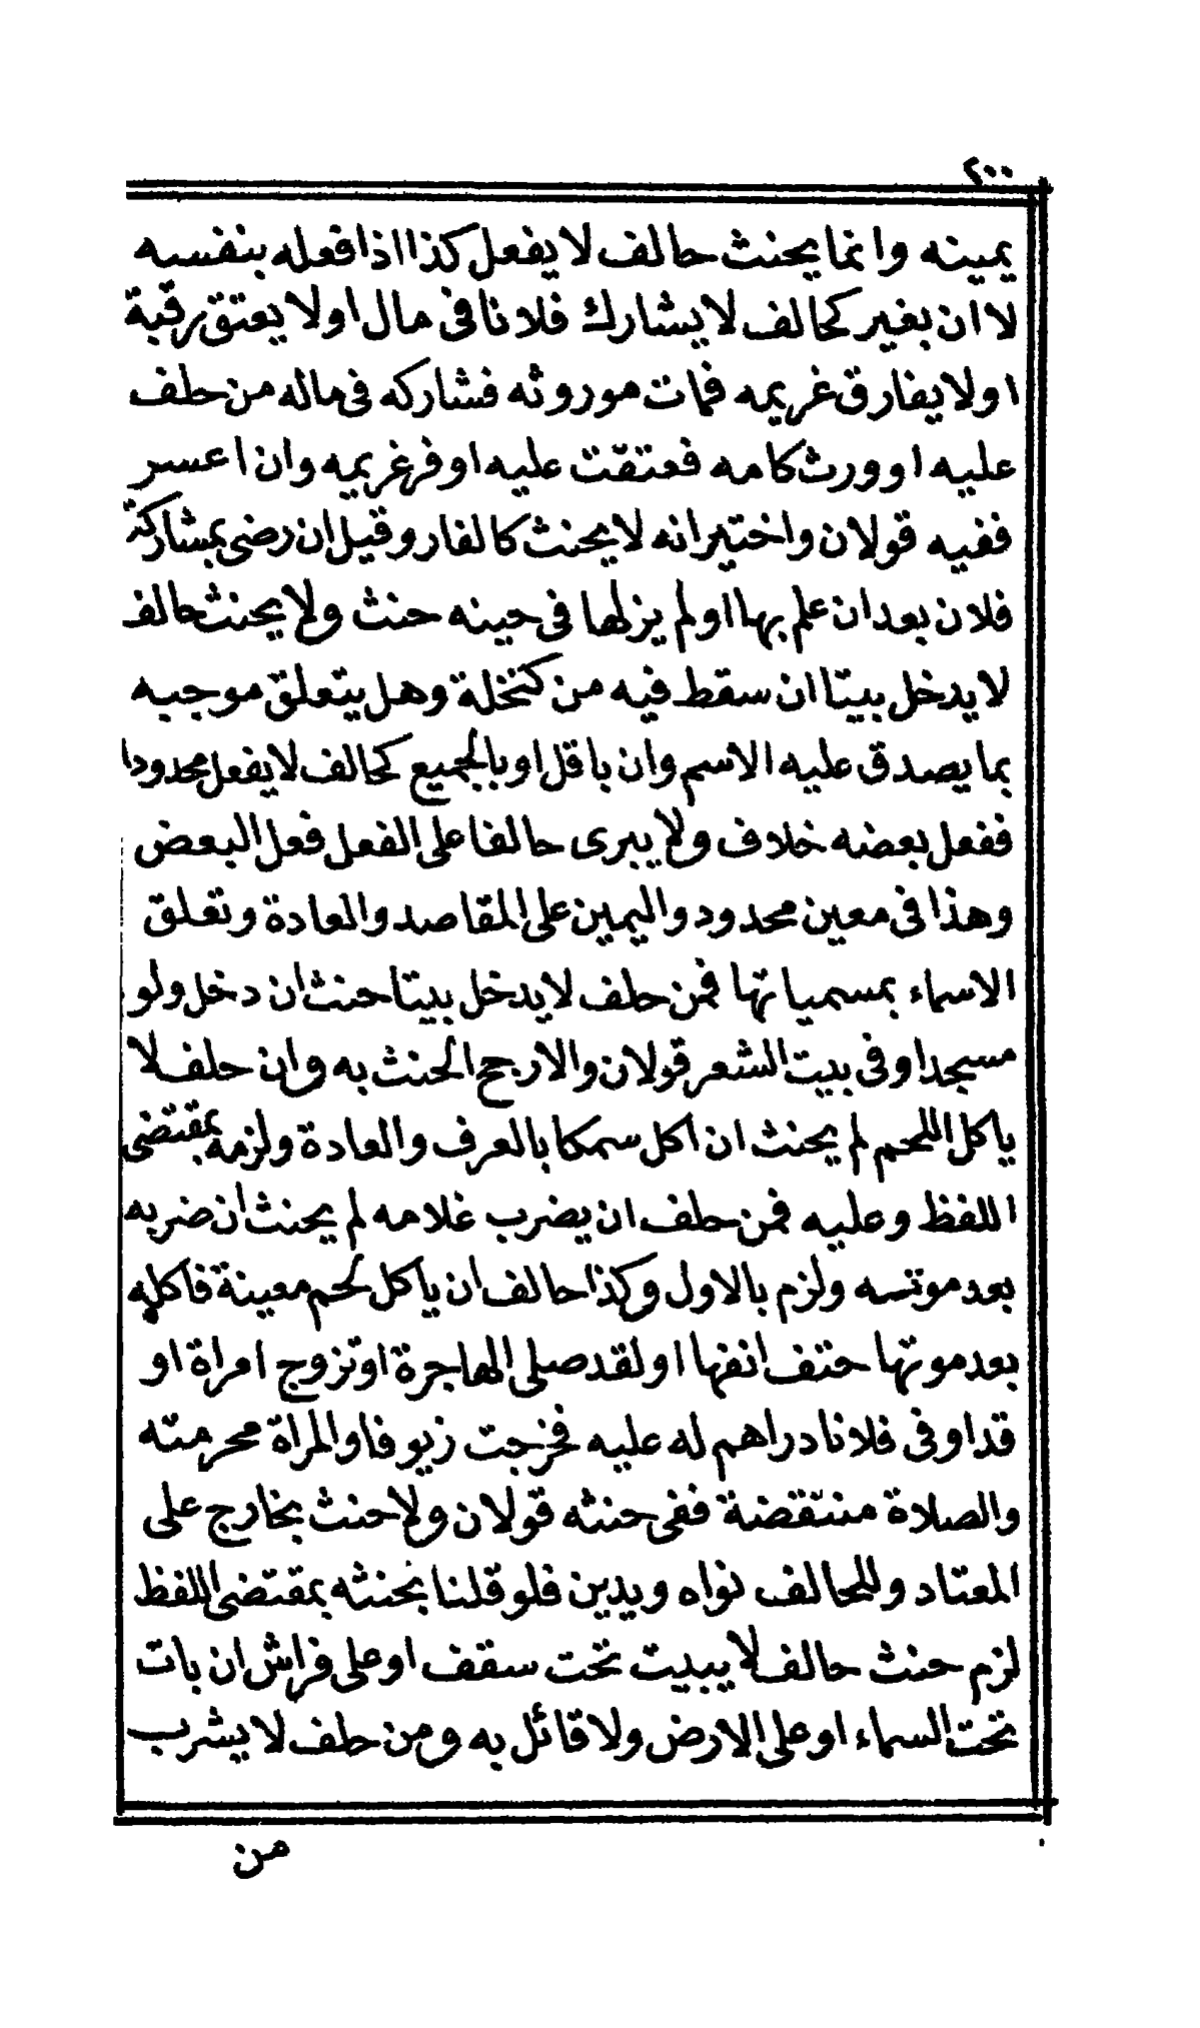 ٢٠٠
يمينه وانما يحنث حالف لا يفعل كذا اذا فعله بنفسه
لا ان بغير كحالف لا يشارك فلانا فى مال او لا يعتق رقبة
او لا يفارق غريمه فمات موروثه فشاركه فى ماله من حلف
عليه او ورث كامه فعتقت عليه او فر غريمه وان اعسر
ففيه قولان واختير انه لا يحنث كالفار وقيل ان رضى بمشاركة
فلان بعد ان علم بها او لم يزلها فى حينه حنث ولا يحنث حالف
لا يدخل بيتا ان سقط فيه من كنخلة وهل يتعلق موجبه
بما يصدق عليه الاسم وان باقل او بالجميع كحالف لا يفعل محدودا
ففعل بعضه خلاف ولا يبرى حالفا على الفعل فعل البعض
وهذا فى معين محدود واليمين على المقاصد والعادة وتعلق
الاسماء بمسمياتها فمن حلف لا يدخل بيتا حنث ان دخل ولو
مسجدا وفى بيت الشعر قولان والارجح الحنث به وان حلف لا
ياكل اللحم لم يحنث ان اكل سمكا بالعرف والعادة ولزمه بمقتضى
اللفظ وعليه فمن حلف ان يضرب غلامه لم يحنث ان ضربه
بعد موتسه ولزم بالاول وكذا حالف ان ياكل لحم معينة فاكله
بعد موتها حتف انفها او لقد صلى الهاجرة او تزوج امراة او
قد اوفى فلانا دراهم له عليه فخرجت زيوفا والمراة محرمته
والصلاة منتقضة ففى حنثه قولان ولا حنث بخارج على
المعتاد وللحالف نواه ويدين فلو قلنا بحنثه بمقتضى اللفظ
لزم حنث حالف لا يبيت تحت سقف او على فراش ان بات
تحت السماء او على الارض ولا قائل به ومن حلف لا يشرب
من